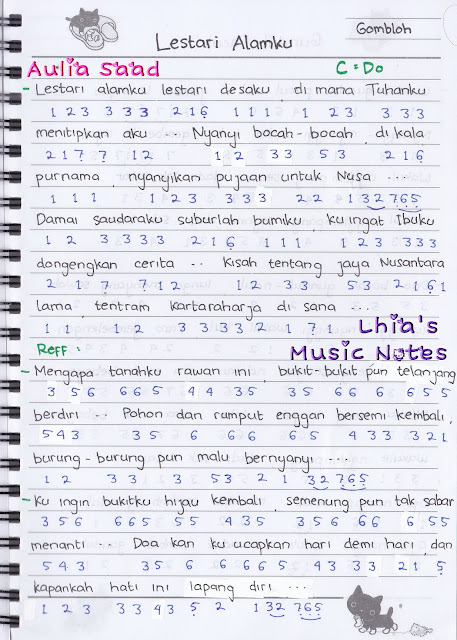 Gombloh
Lestari Alamku
Aulia Saad
C = Do
- Lestari alamku lestari desaku, di mana Tuhanku
1 2 3 3 3 3 2 1 6 1 1 1 1 2 3 3 3
menitipkan aku ... Nyanyi bocah-bocah, di kala
2 1 7 7 1 2 1 2 3 3 5 3 2 1 6
purnama, nyanyikan pujaan untuk Nusa ...
1 1 1 1 2 3 3 3 3 2 2 1 3 2 7 6 5
Damai saudaraku suburlah bumiku, ku ingat Ibuku
1 2 3 3 3 3 2 1 6 1 1 1 1 2 3 3 3 3
dongengkan cerita ... Kisah tentang jaya Nusantara
2 1 7 7 1 2 1 2 3 3 5 3 2 1 6 1
lama, tentram kartaraharja di sana ...
1 1 1 2 3 3 3 3 2 1 7 1
Lhia's
Music Notes
Reff :
- Mengapa tanahku rawan ini, bukit-bukit pun telanjang
3 5 6 6 6 5 4 4 3 5 3 5 6 6 6 6 5 5
berdiri ... Pohon dan rumput enggan bersemi kembali,
5 4 3 3 5 6 6 6 6 5 4 3 3 3 2 1
burung-burung pun malu bernyanyi ...
1 2 3 3 1 3 5 3 2 1 3 2 7 6 5
- Ku ingin bukitku hijau kembali, semenung pun tak sabar
3 5 6 6 6 5 5 5 4 3 5 3 5 6 6 6 6 5 5
menanti ... Doa kan ku ucapkan hari demi hari, dan
5 4 3 3 5 6 6 6 6 5 4 3 3 3 2 1 5
kapankah hati ini lapang diri ...
1 2 3 3 3 4 3 5 2 1 3 2 7 6 5